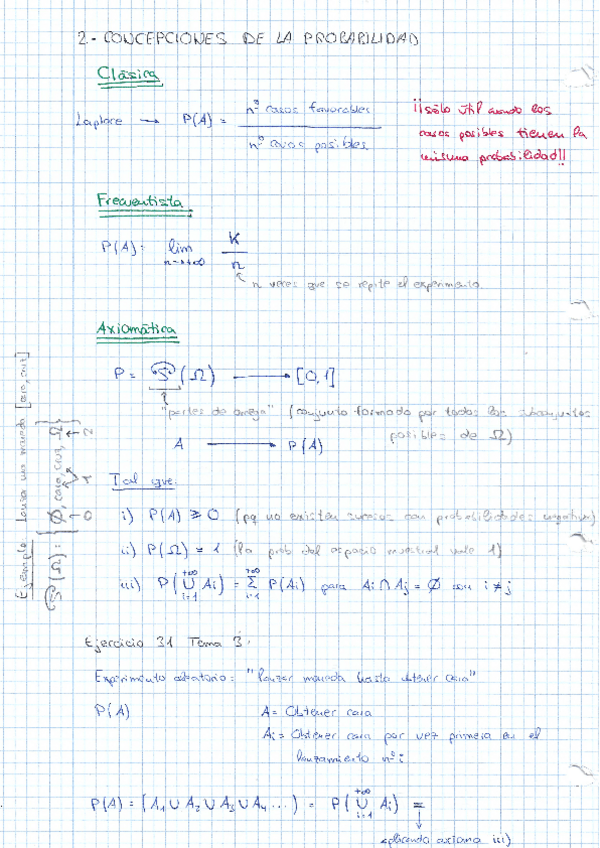 2.- CONCEPCIONES DE LA PROBABILIDAD
Clásica
Laplace → P(A) = nº casos favorables / nº casos posibles
¡¡sólo útil cuando los
casos posibles tienen la
misma probabilidad!!
Frecuentista
P(A) = lim n→+∞ K/n
n veces que se repite el experimento
Axiomática
P = 𝒫(Ω) → [0,1]
"partes de omega" (conjunto formado por todos los subconjuntos
posibles de Ω)
A → P(A)
Tal que:
i) P(A) ⩾ 0 (pq no existen sucesos con probabilidades negativas)
ii) P(Ω) = 1 (la prob del espacio muestral vale 1)
iii) P(∪ Ai) = Σ P(Ai) para Ai ∩ Aj = Ø con i ≠ j
+∞ i=1 +∞ i=1
Ejemplo: lanzar una moneda [cara, cruz]
𝒫(Ω) = {Ø, cara, cruz, Ω}
0 1 2
Ejercicio 31 Tema 3.
Experimento aleatorio: "lanzar moneda hasta obtener cara"
P(A) A = Obtener cara
Ai = Obtener cara por vez primera en el
lanzamiento nº i
P(A) = (A1 ∪ A2 ∪ A3 ∪ A4 ...) = P(∪ Ai) =
+∞ i=1
aplicando axioma iii)